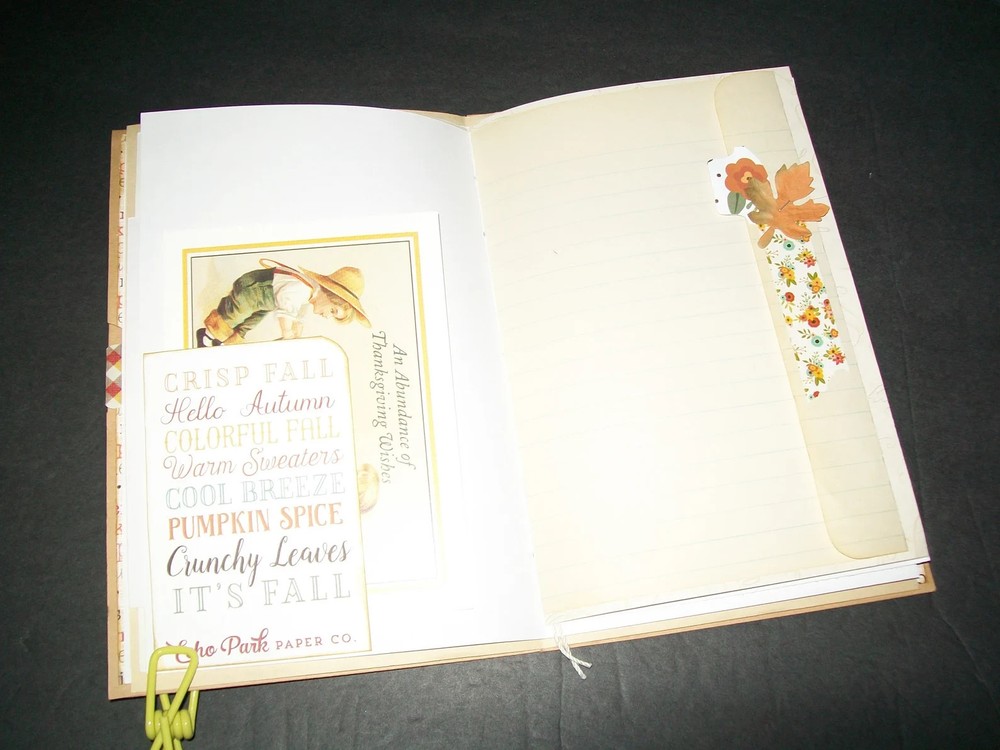 An Abundance of
Thanksgiving Wishes
CRISP FALL
Hello Autumn
COLORFUL FALL
Warm Sweaters
COOL BREEZE
PUMPKIN SPICE
Crunchy Leaves
IT'S FALL
Echo Park PAPER CO.